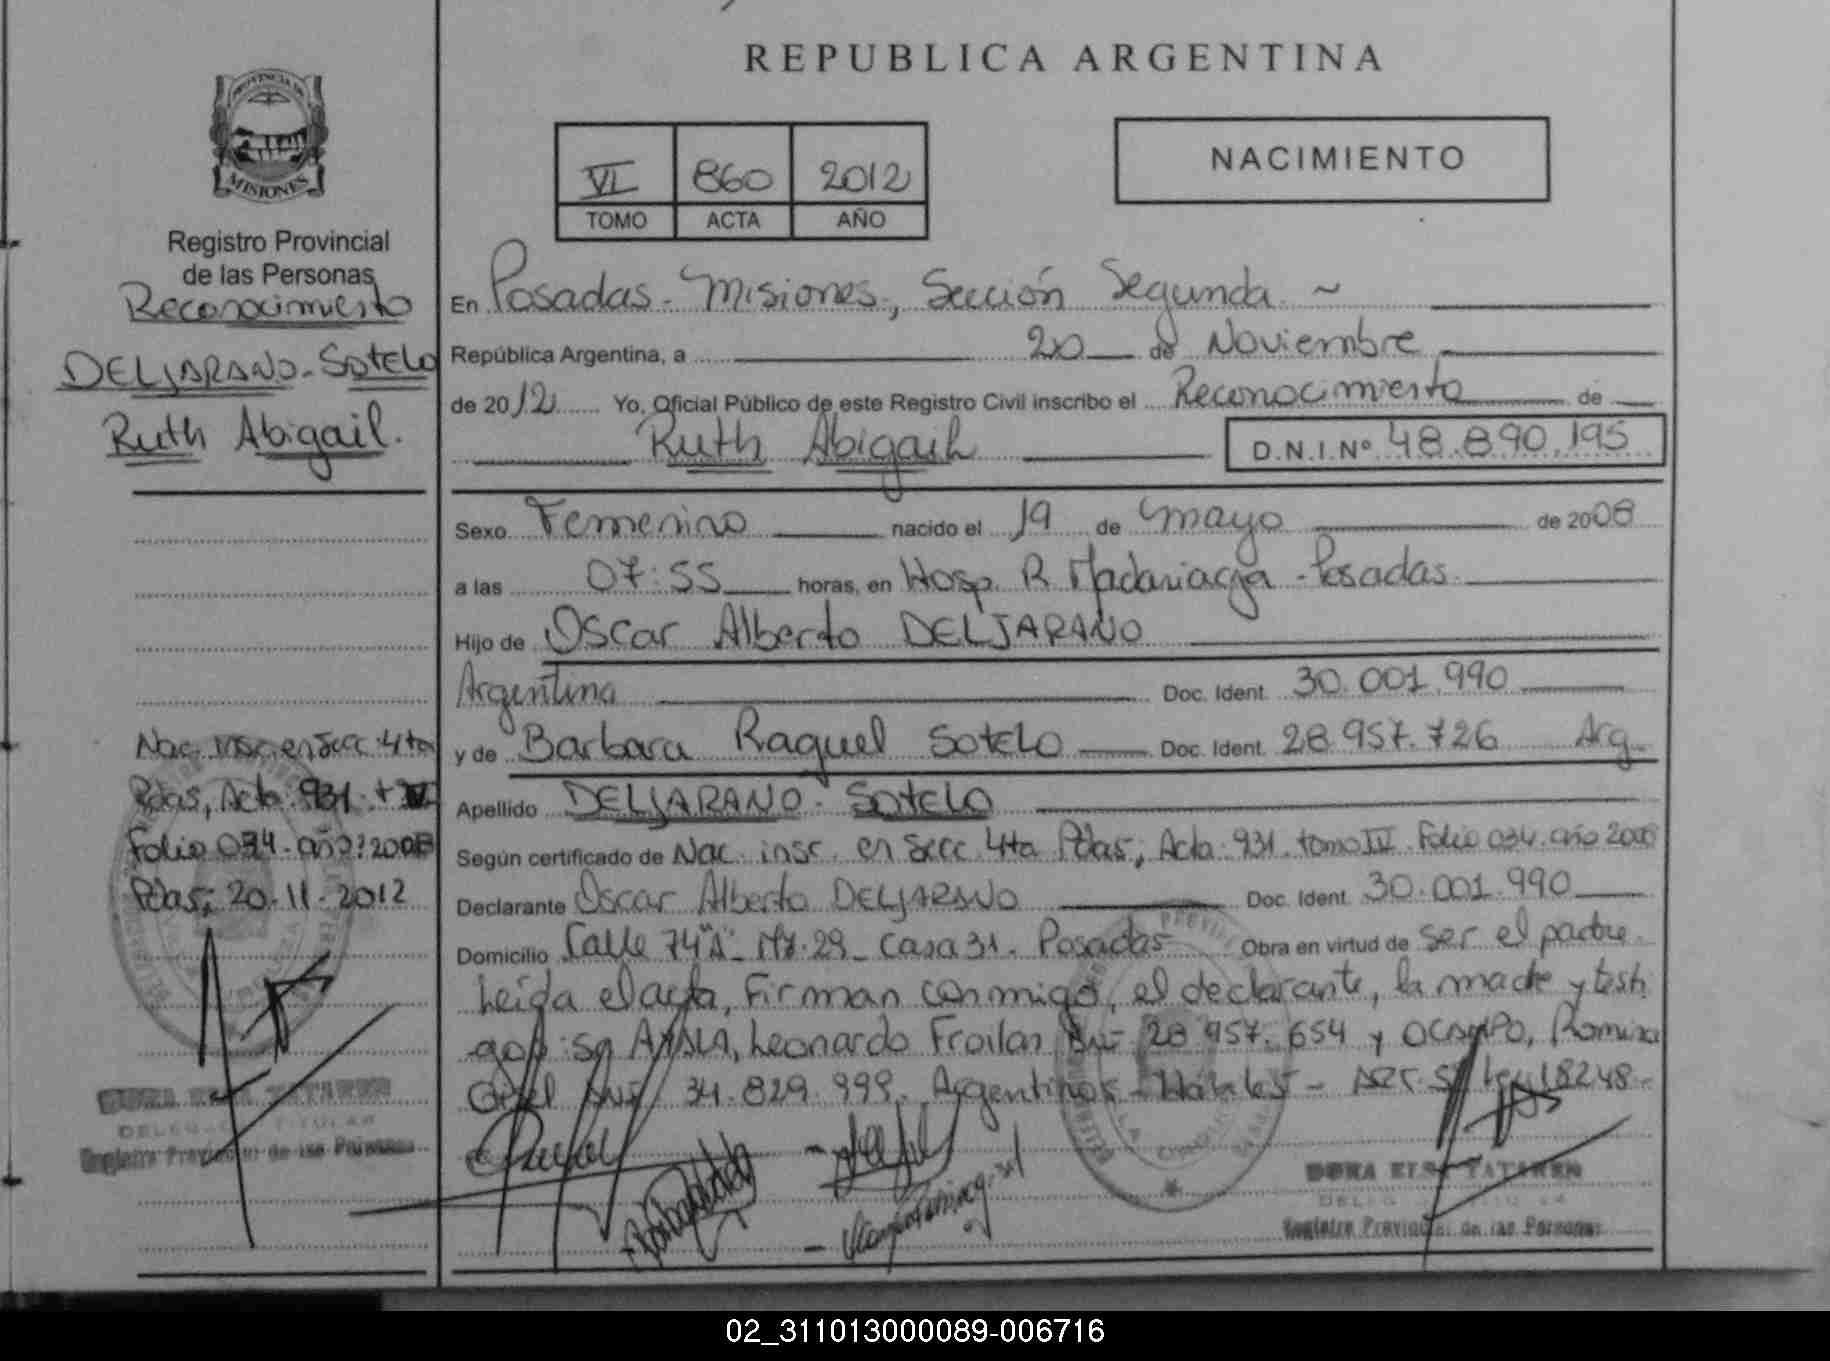 PROVINCIA DE
MISIONES
Registro Provincial
de las Personas
Reconocimiento
DELJARANO-Sotelo
Ruth Abigail.
Nac. insc. en Secc 4ta
Pdas, Acta 931
Folio 034. año: 2008
Pdas; 20-11-2012
DELEGADO TITULAR
Registro Provincial de las Personas
REPUBLICA ARGENTINA
VI 860 2012
TOMO ACTA AÑO
NACIMIENTO
En Posadas - Misiones, Sección Segunda ~
República Argentina, a 20 de Noviembre
de 2012 Yo, Oficial Público de este Registro Civil inscribo el Reconocimiento de
Ruth Abigail D.N.I.Nº 48.890.195
Sexo Femenino nacido el 19 de mayo de 2008
a las 07:55 horas, en Hosp. R Madariaga - Posadas.
Hijo de Oscar Alberto DELJARANO
Argentina Doc. Ident. 30.001.990
y de Barbara Raquel Sotelo Doc. Ident. 28.957.726 Arg
Apellido DELJARANO - Sotelo
Según certificado de Nac. insc. en Secc 4ta Pdas, Acta: 931. tomo IV. Folio 034. año 2008
Declarante Oscar Alberto DELJARANO Doc. Ident. 30.001.990
Domicilio Calle 74"A"- Mz. 29 - Casa 31. Posadas Obra en virtud de ser el padre.
Leida el acta, Firman conmigo, el declarante, la madre y testi
gos: Leonardo Froilan DNI 28.957.654 y OCAMPO, Romina
DNI 34.829.999. Argentinos - Hábiles - Ley 18248.
Registro Provincial de las Personas
02_311013000089-006716